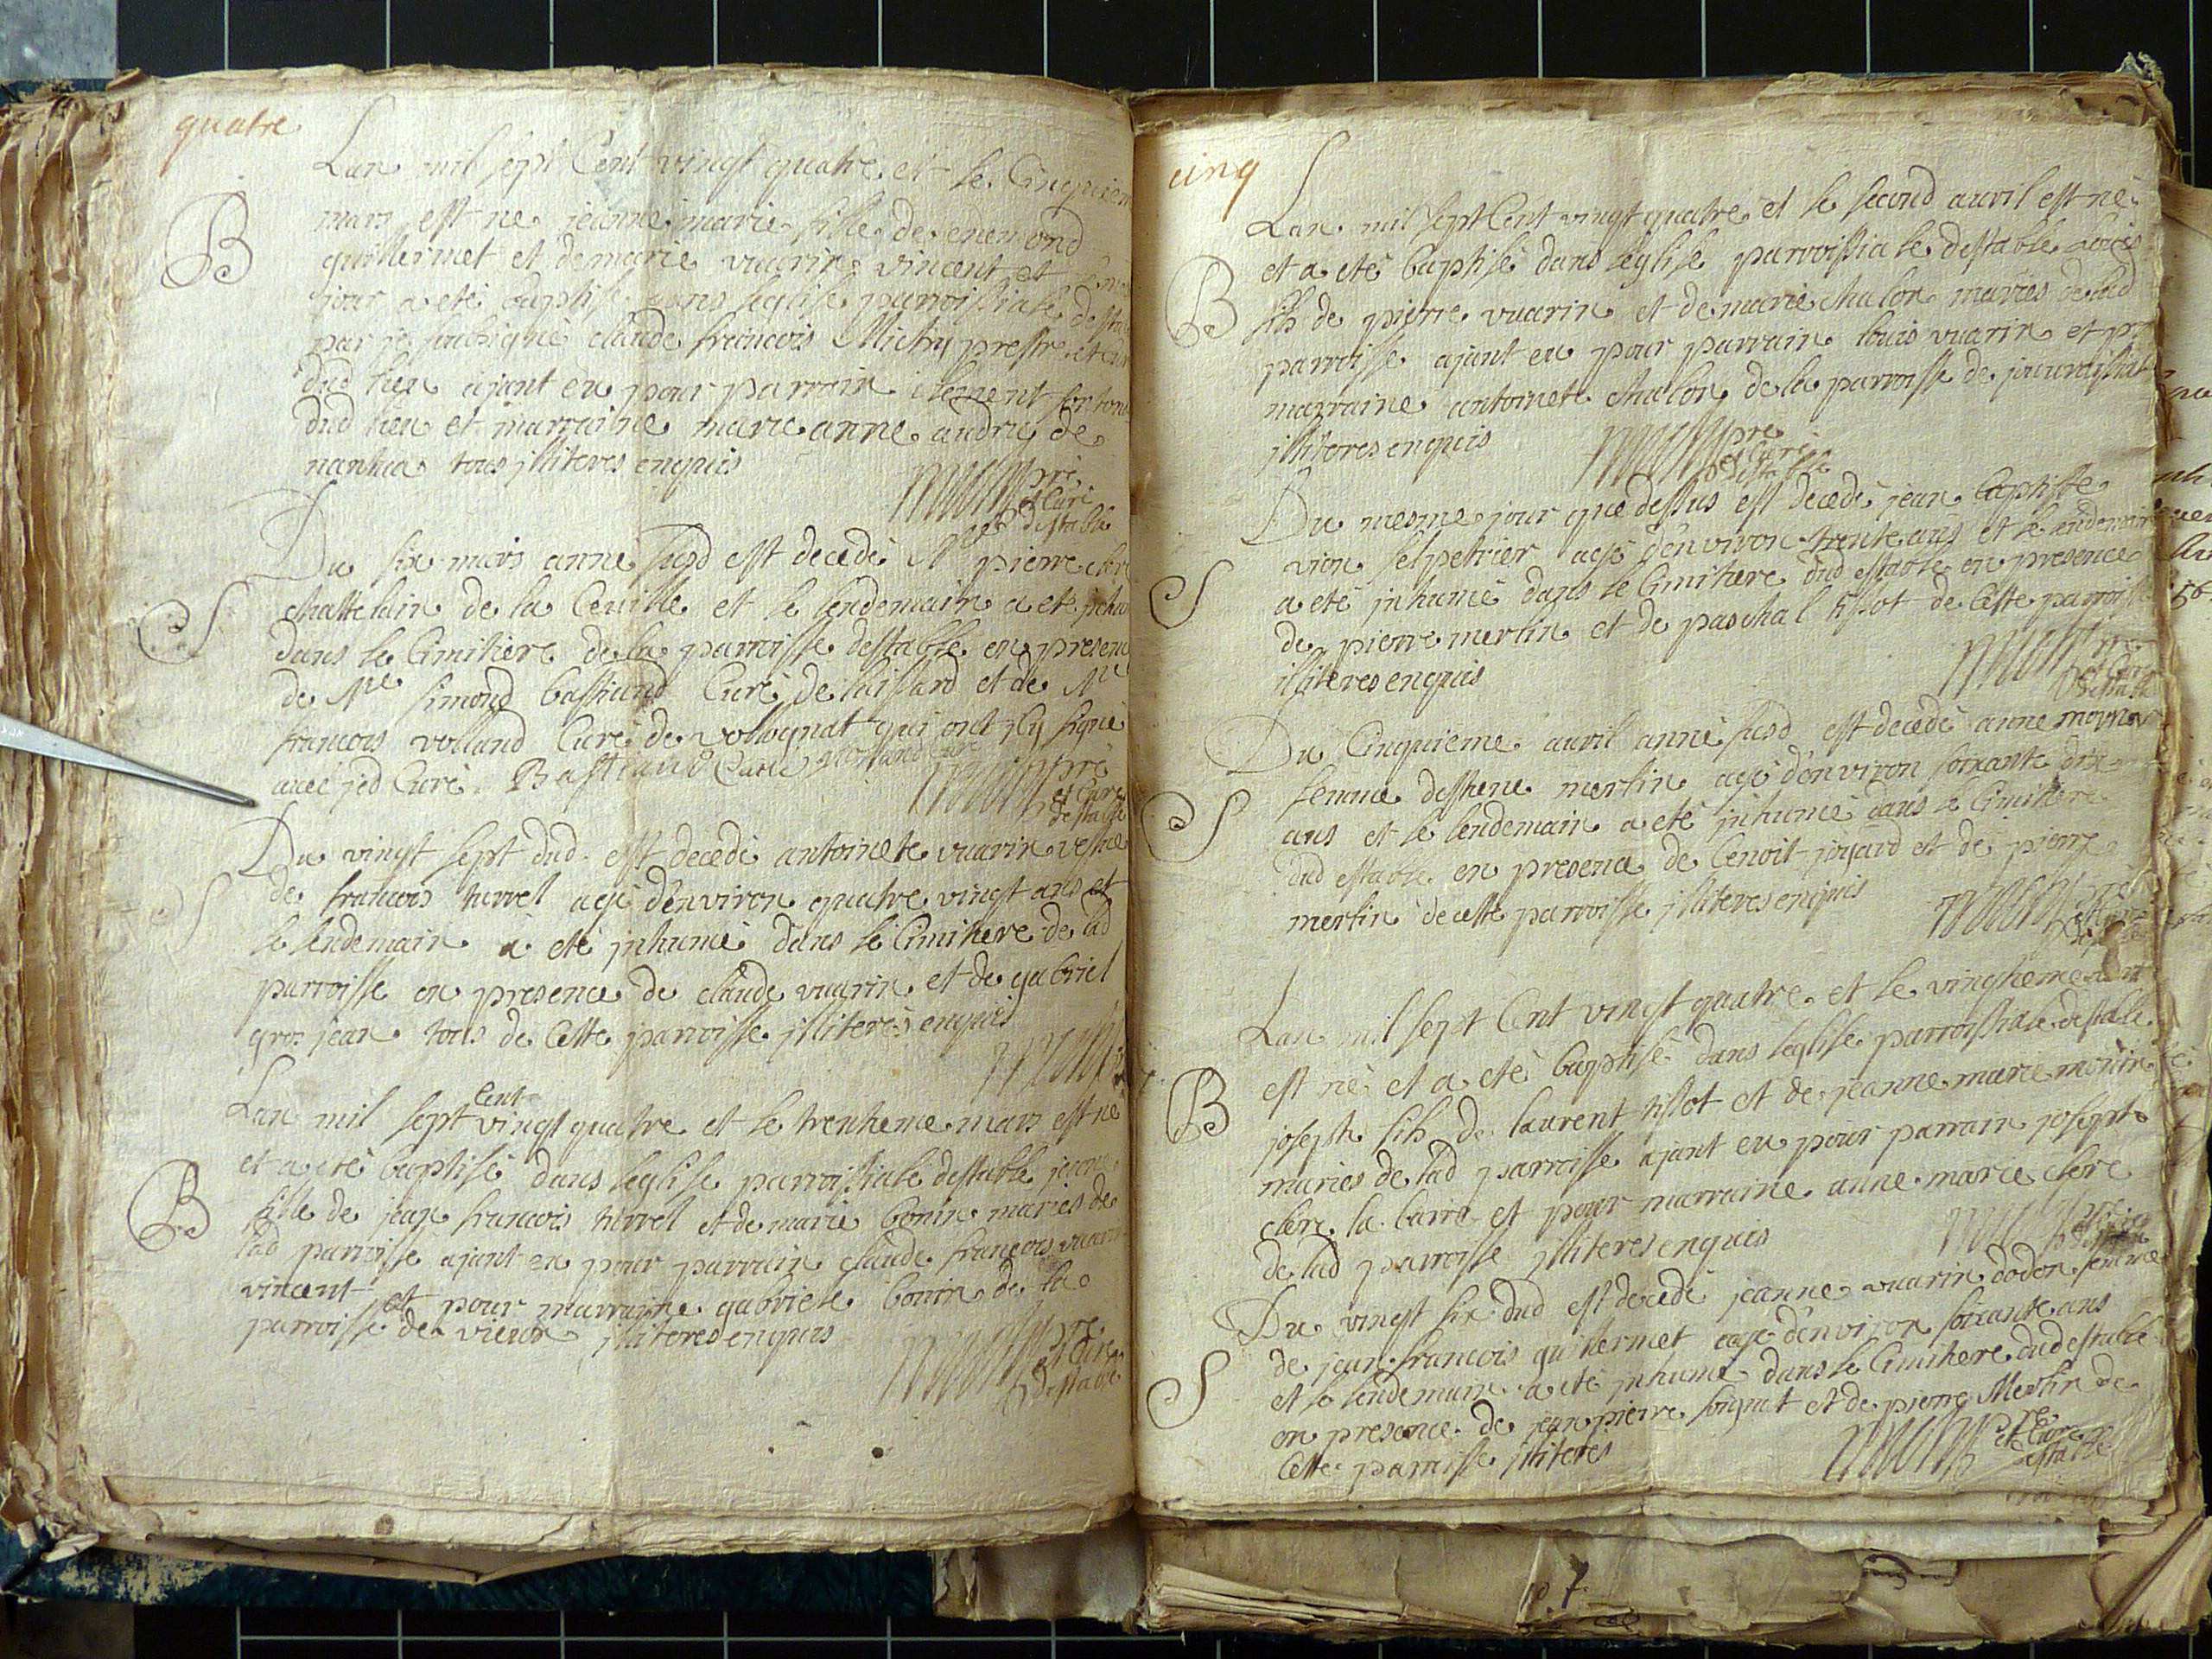 quatre
Lan mil sept Cent vingt quatre et le Cinquiem
B
mars est ne jeanne marie fille de enemond
guillermet et de marie vuarin vincent et
jour a eté baptisé dans leglise parroissiale desta
par je soubsigné claude francois Michy prestre et cur
dud lieu ajant eu pour parrain clement
dud lieu et marraine marie anne audru de
nantua tous jlliteres enquis
pre
et Curé
destable
Du six mars anné susd est decedé Mre pierre cler
S
chattelain de la Ceuille et le lendemain a eté jnhu
dans le Cimitiere de la parroisse destable en presenc
de Mre simond bastiand Curé de laissard et de Mre
francois volland Curé de volognat qui ont jcy signé
avec jed Curé. Bastiand Curé Volland Curé
pre
et Curé
destable
Du vingt sept dud est decedé antoinete vuarin vefue
S
de francois turrel agé denviron quatre vingt ans et
le lendemain a eté jnhumé dans le Cimitiere de lad
parroisse en presence de claude vuarin et de gabriel
gros jean tous de Cette parroisse jlliteres enquis
Cent
Lan mil sept vingt quatre et le trentieme mars est ne
et a eté baptisé dans leglise parroissiale destable jean
B
fille de jean francois turrel et de marie bonin mariés de
lad parroisse ajant eu pour parrain claude francois vuarin
vincent et pour marraine gabriele bonin de la
parroisse de vieux jlliteres enquis
pre
et Curé
destable
cinq
Lan mil sept Cent vingt quatre et le second auril est né
et a eté baptisé dans leglise parroissiale destable Louis
B
fils de pierre vuarin et de marie chalon mariés de lad
parroisse ajant eu pour parrain louis vuarin et pr
marraine antoinete chalon de la parroisse de
jlliteres enquis
pre
et Curé
destable
Du mesme jour que dessus est decedé jean baptiste
vion selpetrier agé denviron trente ans et le lendemain
S
a eté jnhumé dans le Cimitiere dud estable en presence
de pierre merlin et de paschal tissot de Cette parroisse
jlliteres enquis
pre
et Curé
destable
Du Cinquieme auril anné susd est decedé anne
femme destiene merlin agé denviron soixante dix
S
ans et le lendemain a eté jnhumé dans le Cimitiere
dud estable en presence de benoit et de pierre
merlin de cette parroisse jlliteres enquis
pre
et Curé
Lan mil sept Cent vingt quatre et le vingtieme auril
est né et a eté baptisé dans leglise parroissiale destable
B
joseph fils de laurent tissot et de jeanne marie
mariés de lad parroisse ajant eu pour parrain joseph
clerc la barre et pour marraine anne marie clerc
de lad parroisse jlliteres enquis
pre
Du vingt six dud est decedé jeanne vuarin dodon femme
de jean francois guillermet agé denviron soixante ans
S
et le lendemain a eté jnhumé dans le Cimitiere dud estable
en presence de jean pierre et de pierre Merlin de
Cette parroisse jlliteres
pre
et Curé
destable